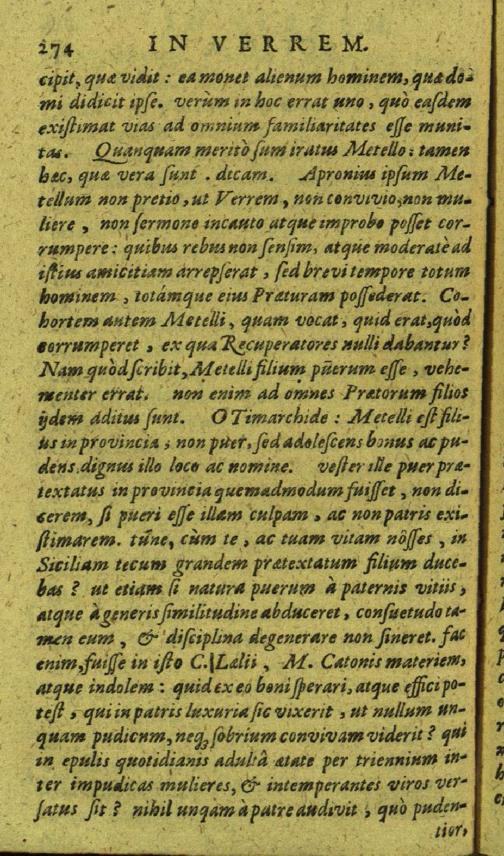 274 IN VERREM.
cipit, quæ vidit : ea monet alienum hominem, quæ do-
mi didicit ipse. verùm in hoc errat uno, quò easdem
existimat vias ad omnium familiaritates esse muni-
tas. Quanquam meritò sum iratus Metello : tamen
hæc, quæ vera sunt . dicam. Apronius ipsum Me-
tellum non pretio, ut Verrem, non convivio, non mu-
liere, non sermone incauto atque improbo posset cor-
rumpere : quibus rebus non sensim, atque moderatè ad
istius amicitiam arrepserat, sed brevi tempore totum
hominem, totámque eius Præturam possederat. Co-
hortem autem Metelli, quam vocat, quid erat, quòd
corrumperet, ex qua Recuperatores nulli dabantur?
Nam quòd scribit, Metelli filium pũerum esse, vehe-
menter errat. non enim ad omnes Prætorum filios
ijdem áditus sunt. O Timarchide : Metelli est fili-
us in provincia, non puer, sed adolescens bonus ac pu-
dens, dignus illo loco ac nomine. vester ille puer præ-
textatus in provincia quemadmodum fuisset, non di-
cerem, si pueri esse illam culpam, ac non patris exi-
stimarem. tũne, cùm te, ac tuam vitam nôsses, in
Siciliam tecum grandem prætextatum filium duce-
bas? ut etiam si natura puerum à paternis vitiis,
atque à generis similitudine abduceret, consuetudo ta-
men eum, & disciplina degenerare non sineret. fac
enim, fuisse in isto C. Lælii, M. Catonis materiem,
atque indolem : quid ex eo boni sperari, atque effici po-
test, qui in patris luxuria sic vixerit, ut nullum un-
quam pudicum, neq; sobrium convivam viderit? qui
in epulis quotidianis adultâ ætate per triennium in-
ter impudicas mulieres, & intemperantes viros ver-
satus sit? nihil unqàm à patre audivit, quò puden-
tior,